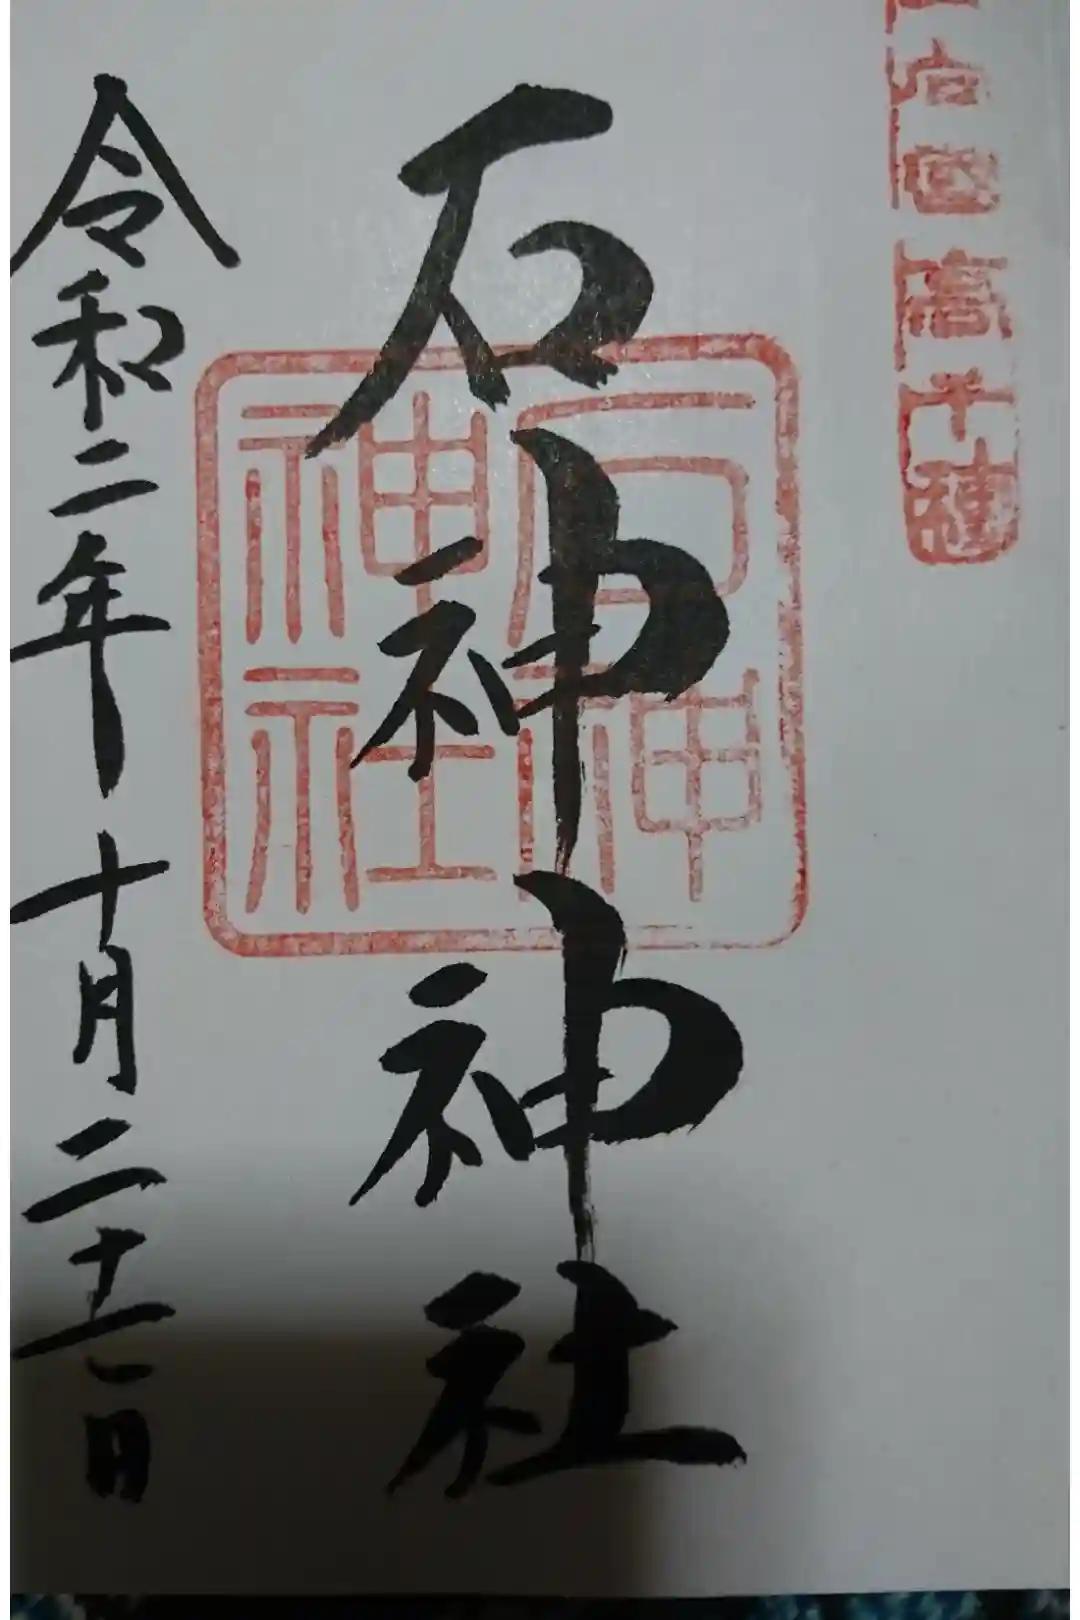 向國高千穂
石神神社
石神
神社
令和二年十月二十日